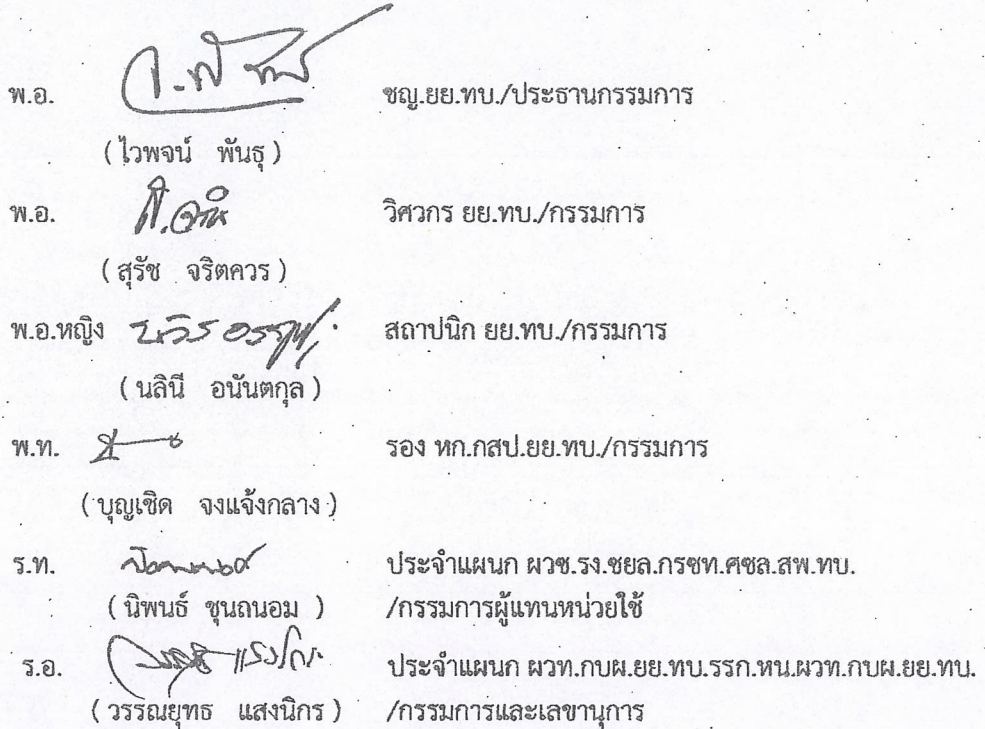 พ.อ. ชญ.ยย.ทบ./ประธานกรรมการ
( ไวพจน์ พันธุ )
พ.อ. วิศวกร ยย.ทบ./กรรมการ
( สุรัช จริตควร )
พ.อ.หญิง สถาปนิก ยย.ทบ./กรรมการ
( นลินี อนันตกุล )
พ.ท. รอง หก.กสป.ยย.ทบ./กรรมการ
( บุญเชิด จงแจ้งกลาง )
ร.ท. ประจำแผนก ผวซ.รง.ซยล.กรซท.ศซล.สพ.ทบ.
( นิพนธ์ ชุนถนอม ) /กรรมการผู้แทนหน่วยใช้
ร.อ. ประจำแผนก ผวท.กบผ.ยย.ทบ.รรก.หน.ผวท.กบผ.ยย.ทบ.
( วรรณยุทธ แสงนิกร ) /กรรมการและเลขานุการ